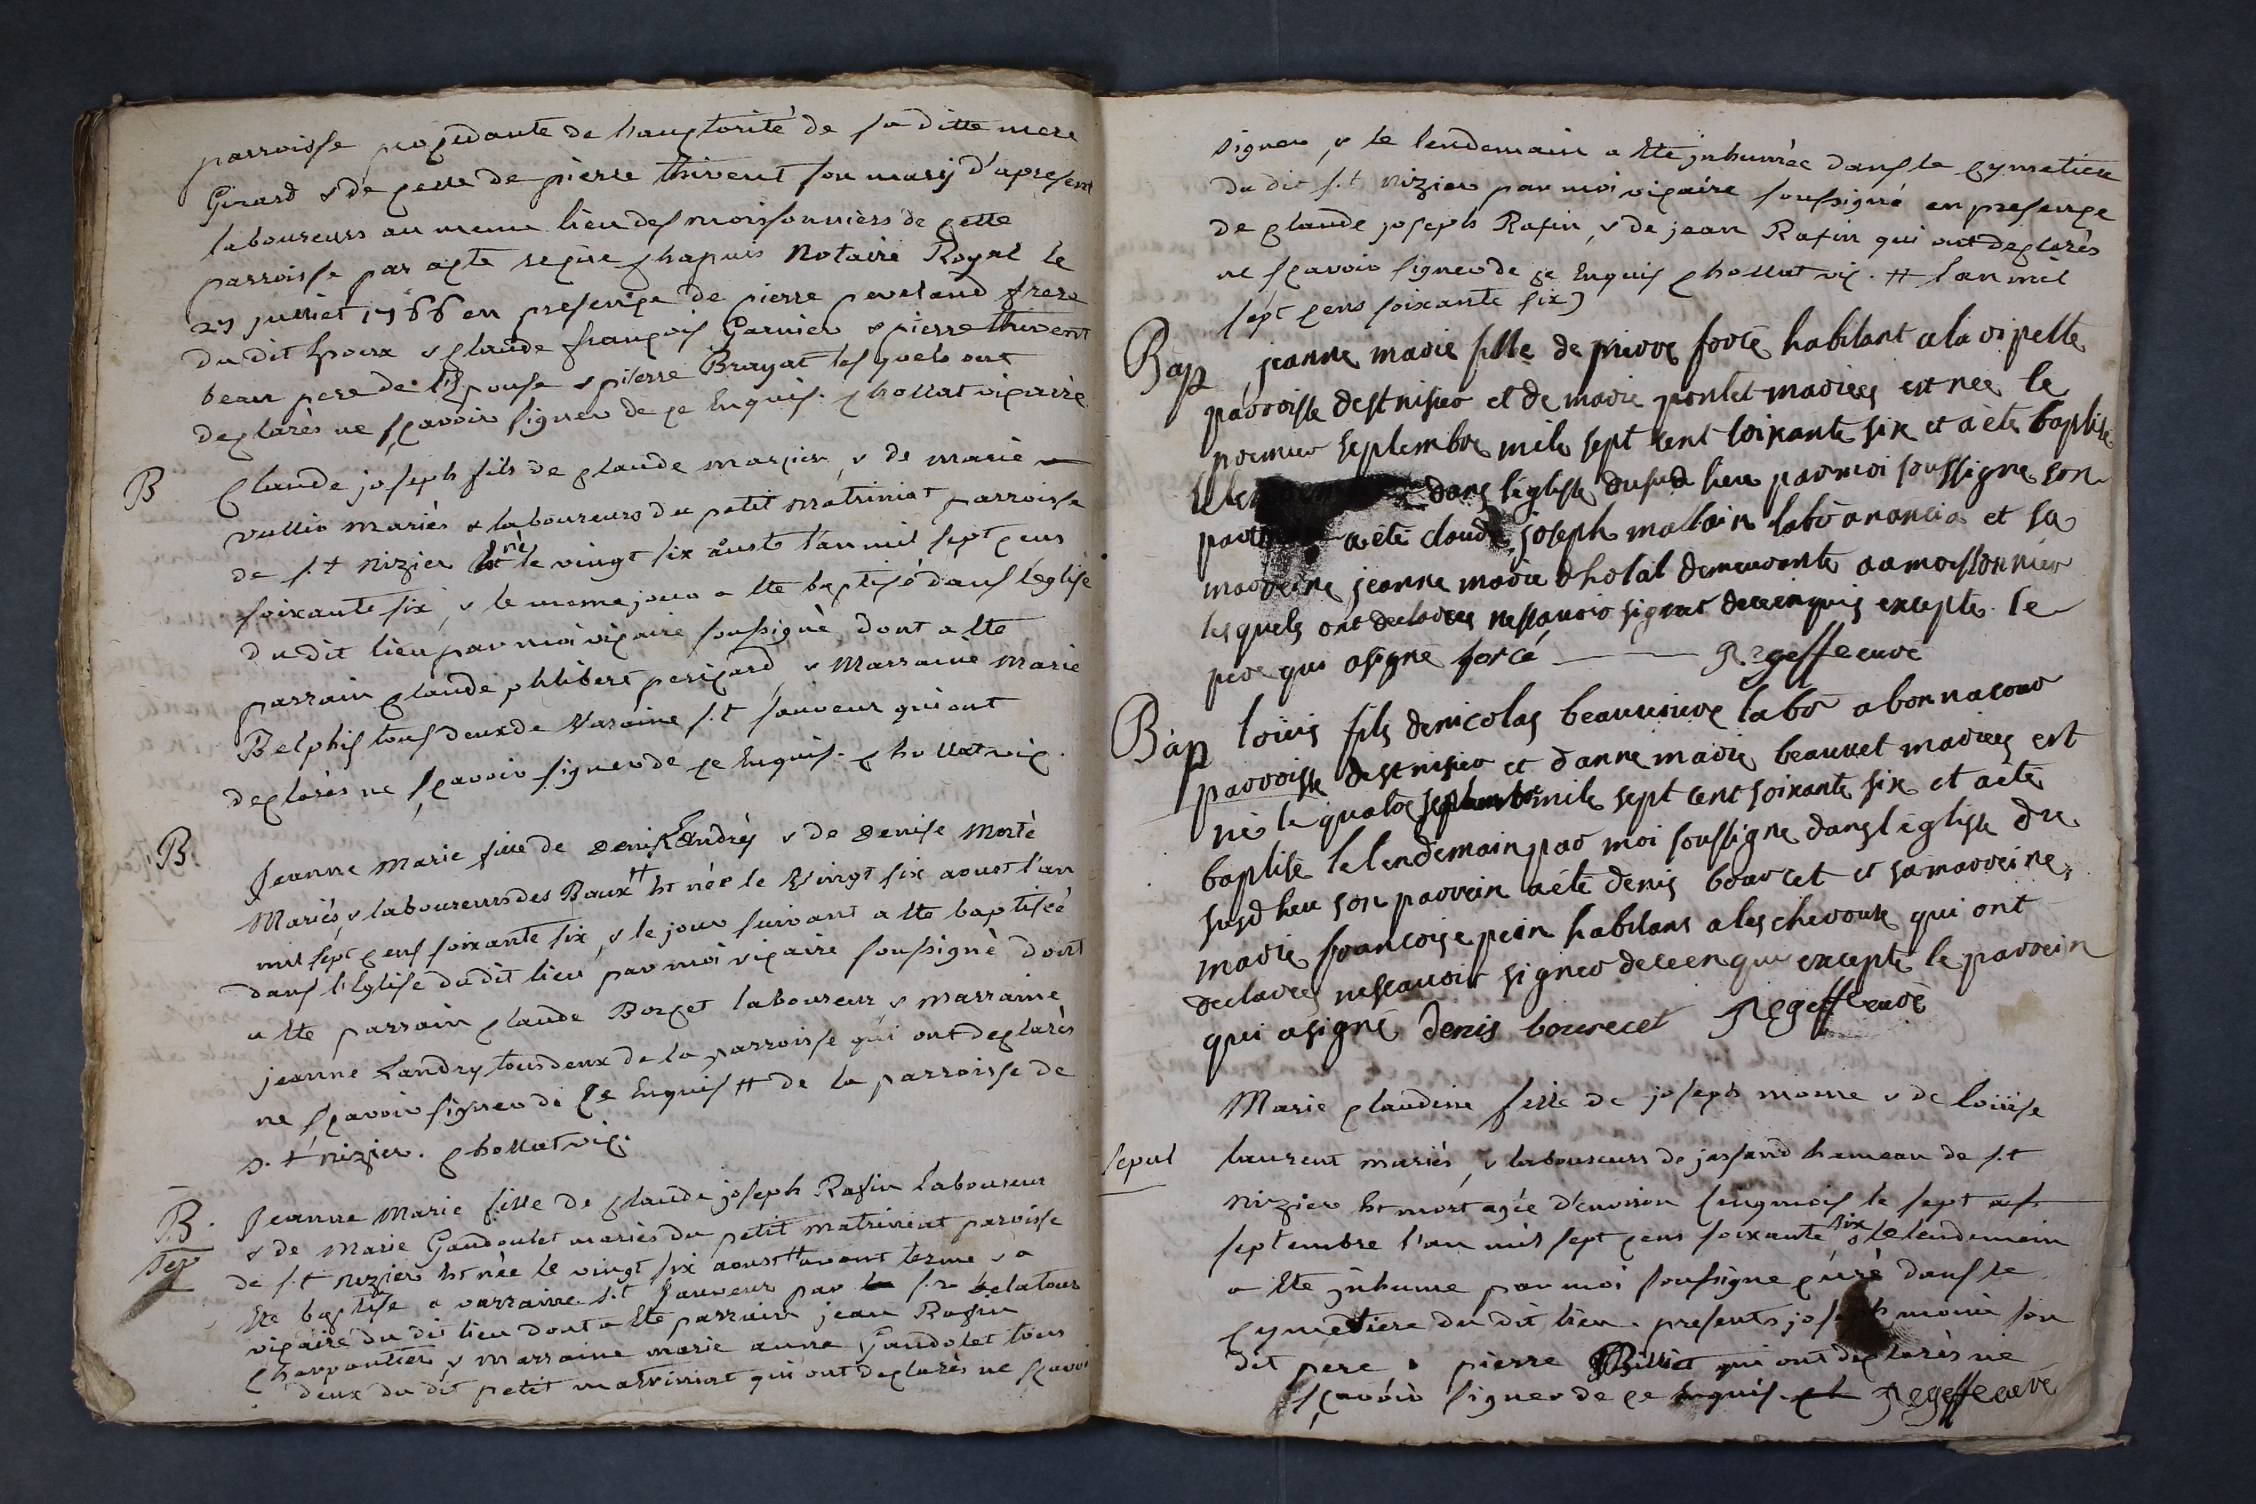 parroisse procedante de hauctorité de sa ditte mere
Girard & de celle de pierre thivent son mary d'apresent
laboureurs au meme lieu des moissonniers de cette
parroisse par acte reçûe chapuis Notaire Royal le
27 juilliet 1766 en presençe de pierre peveland frere
du dit Epoux & claude françois Garnier & pierre thivent
beau pere de l'Epouse & pierre Brayat lesquels ont
declarés ne sçavoir signer de ce Enquis. chollat vicaire
B
Claude joseph fils de claude marcier & de marie
vullie mariés & laboureurs du petit matriniat parroisse
de s.t nizier Est né le vingt six aûst l'an mil sept cens
soixante six, & le meme jour a Ete baptisé dans l'eglise
du dit lieu par moi vicaire soussigné dont a Ete
parrain claude philibert pericard & Marraine Marie
Belphis tous deux de Varaine s.t sauveur qui ont
declarés ne sçavoir signer de ce Enquis. chollat vic.
B.
Jeanne Marie fille de denis Landry & de Denise Morté
Mariés & laboureurs des Baux ++ Est née le Vingt six aoust l'an
mil sept cens soixante six, & le jour suivant a Ete baptiseé
dans l'Eglise du dit lieu par moi vicaire soussigné dont
a Ete parrain claude Borget laboureur, & marraine
jeanne Landry tous deux de la parroisse qui ont declarés
ne sçavoir signer de Ce Enquis ++ de la parroisse de
s.t nizier. chollat vic.
B.
Sep
Jeanne Marie fille de claude joseph Rafin laboureur
& de Marie Gandoulet mariés du petit matriniat paroisse
de s.t nizier Est née le vingt six aoust ++ avant terme & a
Ete baptise a varraine s.t sauveur par le s.r delatour
vicaire du dit lieu dont a Ete parrain jean Rafin
Charpantier & marraine marie anne Gandolet tous
deux du dit petit matriniat qui ont declarés ne sçavoir
signer, & le lendemain a Ete jnhumée dans le cymetiere
du dit s.t nizier par moi vicaire soussigné en presençe
de claude joseph Rafin, & de jean Rafin qui ont declarés
ne sçavoir signer de ce Enquis chollat vic. ++ l'an mil
sept cens soixante six)
Bap jeanne marie fille de pierre forcé habitant a la vipelte
parroisse de st nisier et de marie ponlet mariées est née le
premier septembre mile sept cent soixante six et a été baptise
dans léglise dusud lieu par moi soussigne son
a été claude joseph labo a et sa
marreine jeanne marie chotat demeurante au moissonnier
lesquels ont declarees ne scauoir signer de ce enquis excepte le
pere qui a signé forcé Regeffe curé
Bap loüis fils de nicolas beauvieux labo a bonnacour
parroisse de st nisier et d'anne marie beauvet mariees est
né le quatre septembre mile sept cent soixante six et a été
baptise le lendemain par moi soussigne dans l église du
susd lieu son parrein a été denis bourcet et sa marreine
marie francoise pein habitans a les chevrouse qui ont
declarees ne scauoir signer de ce enquis excepte le parrein
qui a signé denis bourecet Regeffe curé
Sepul
Marie claudine fille de joseph moine & de loüise
laurent mariés, & laboureurs de jassand hameau de s.t
nizier Est mort agée d'environ cinq mois le sept
septembre l'an mil sept cens soixante six & le lendemain
a Ete jnhume par moi soussigne cûré dans le
cymetiere du dit lieu. presents joseph moine son
dit pere & pierre Billiet qui ont declarés ne
sçavoir signer de ce enquis. ch Regeffe curé